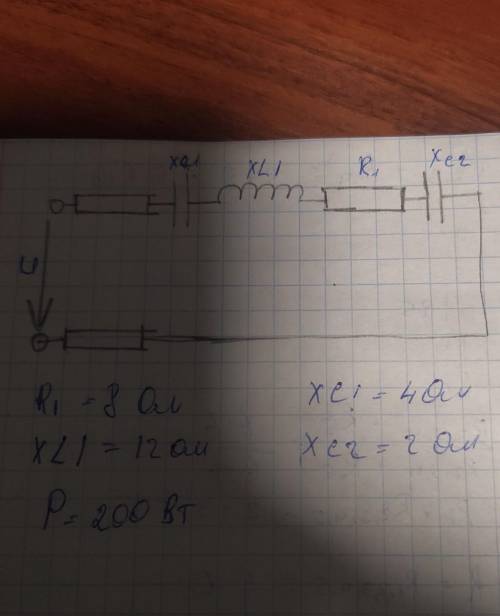 XC1 XL1 R1 XC2
U
R1 = 8 Ом XC1 = 4 Ом
XL1 = 12 Ом XC2 = 2 Ом
P = 200 Вт